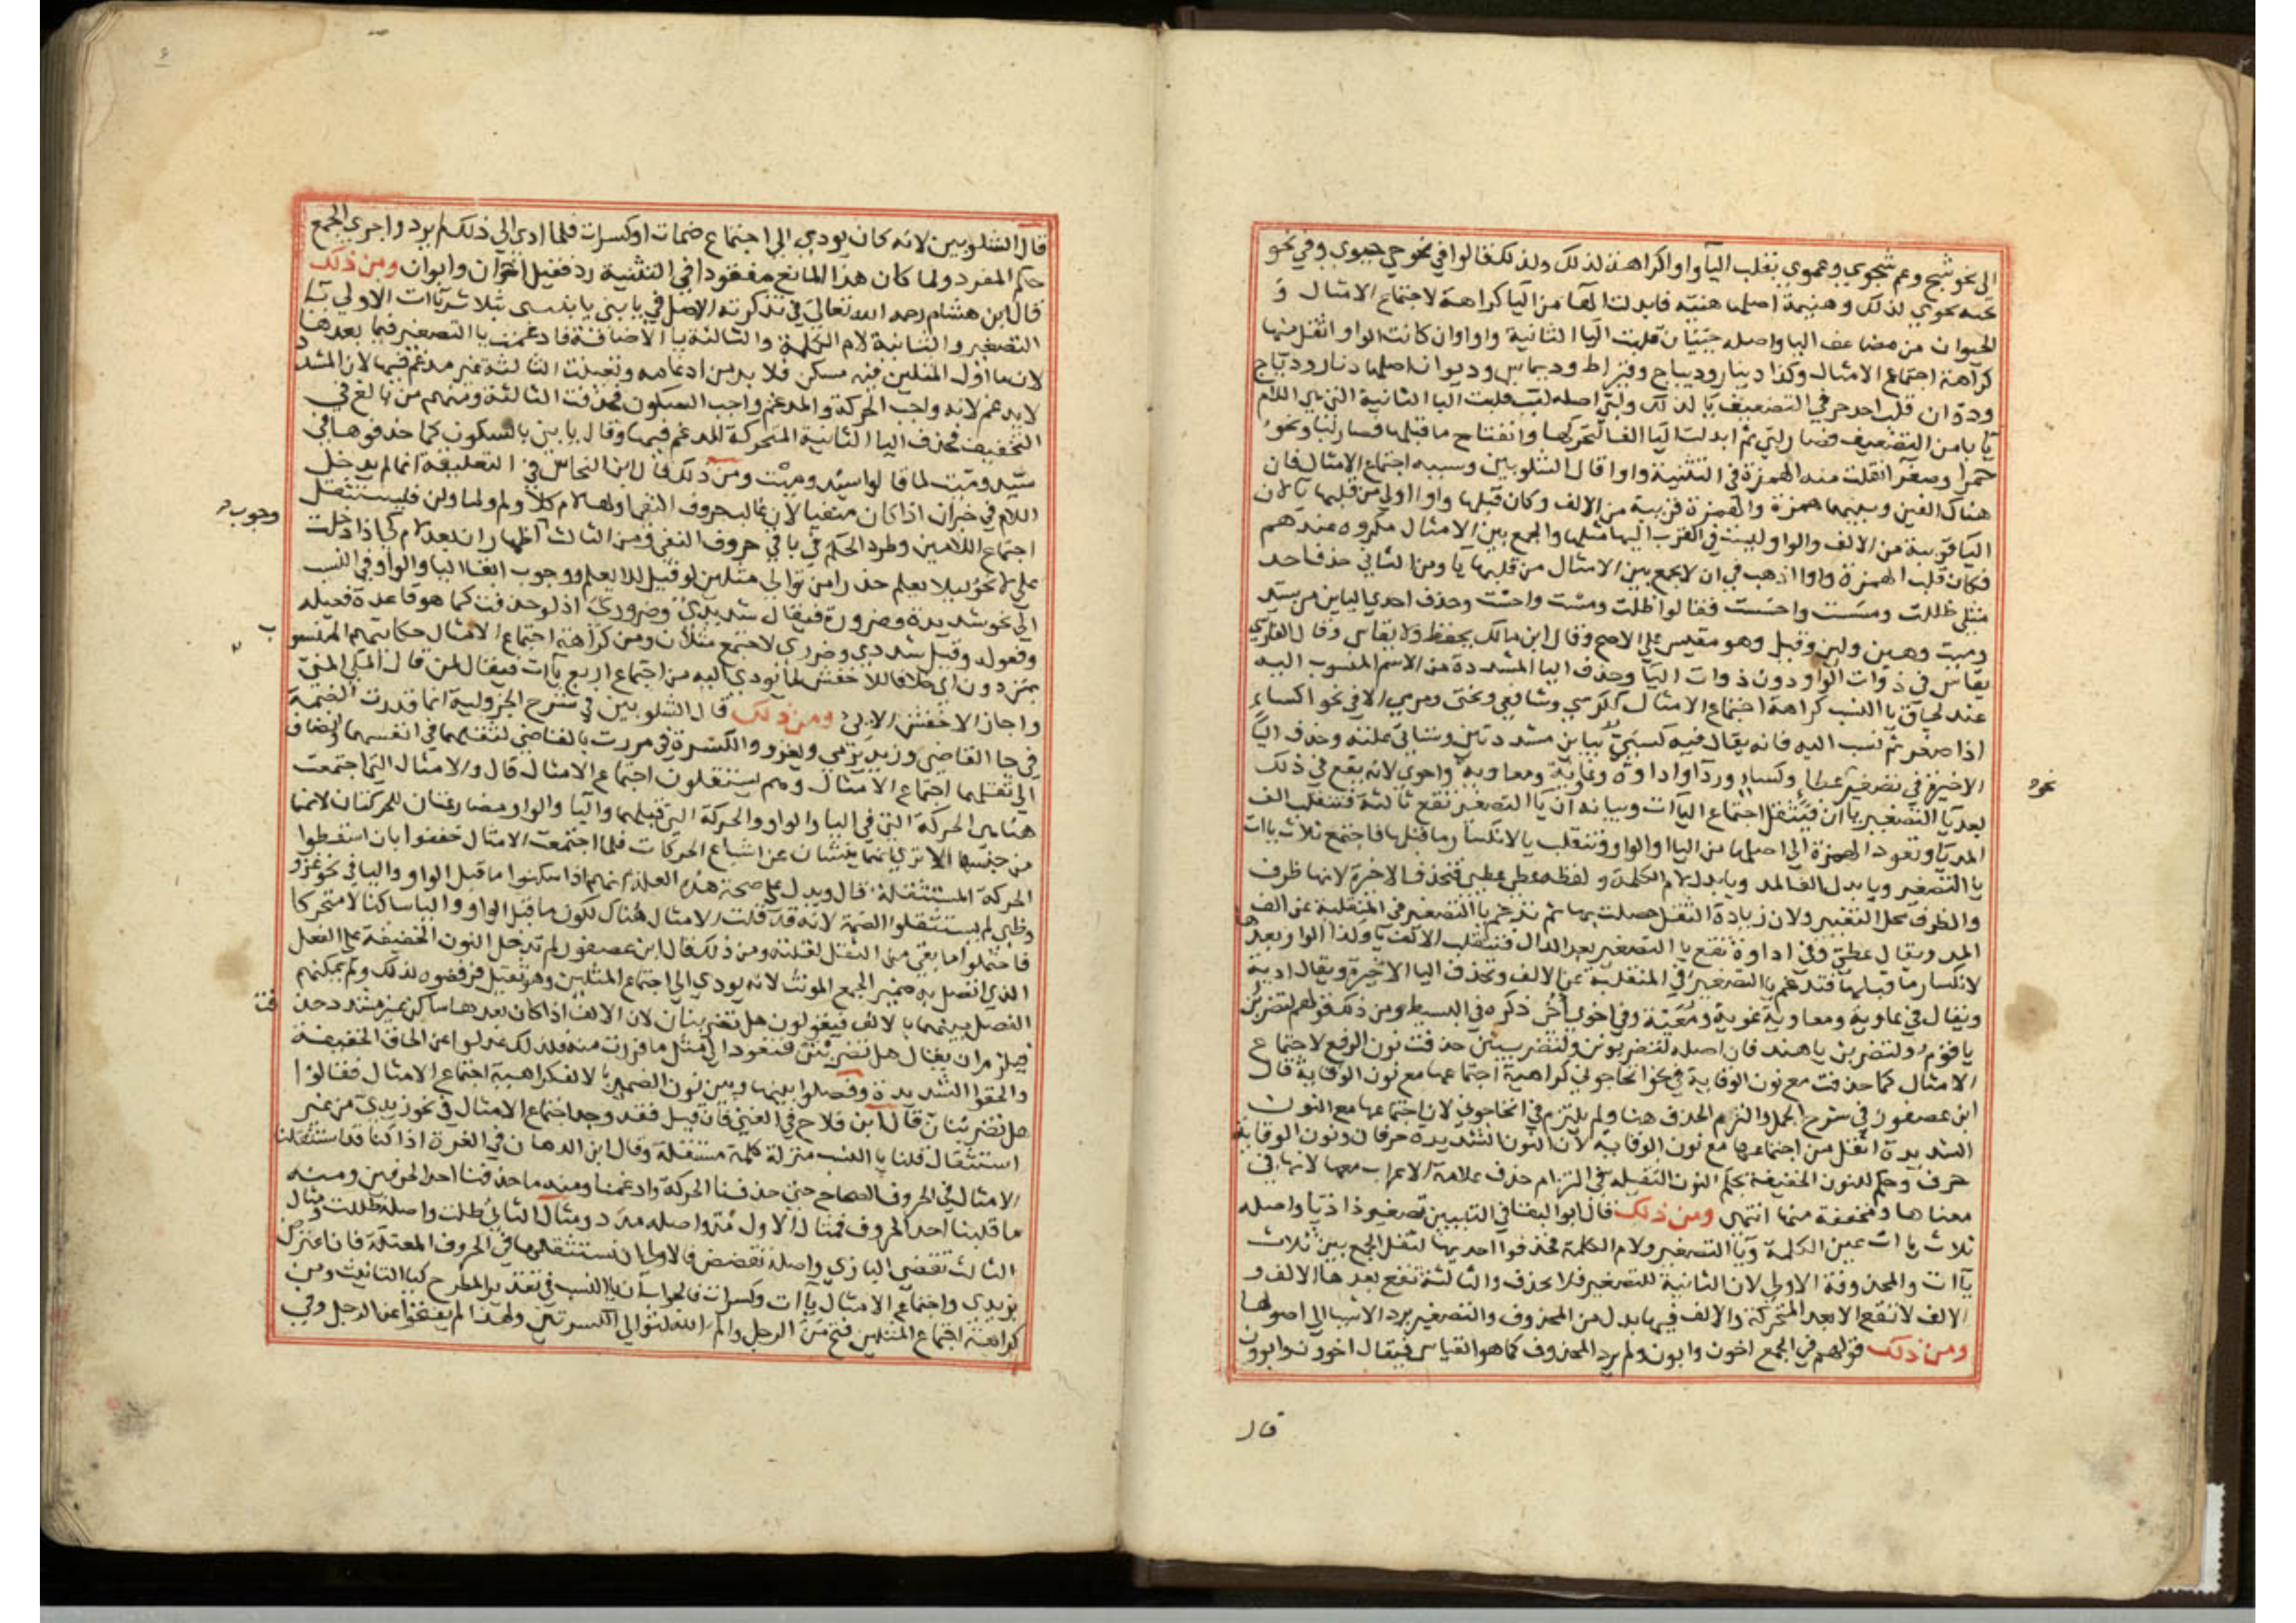 الى نحو شج وعم شجوي وعموي بقلب اليآ واوا كراهة لذلك ولذلك قالوا في نحو حي حيوي وفي نحو
تحيه تحوي لذلك وهنيهة اصلها هنيّه فابدلت الهآ من اليا كراهة لاجتماع الامثال و
الحيوان من مضاعف اليا واصله حييان قلبت اليا الثانية واوا وان كانت الواو اثقل منها
كراهة اجتماع الامثال وكذا دينار وديباج وقيراط وديماس وديوان اصلها دنار ودباج
ودوان قلب احد حرفي التضعيف يا لذلك ولبى اصله لبب قلبت البا الثانية التي هي اللام
يا يا من التضعيف فصار لبي ثم ابدلت اليا الفا لتحركها وانفتاح ما قبلها فصار لبا ونحو
حمرا وصفرا انقلبت منه الهمزة في التثنية واوا قال الشلوبين وسببه اجتماع الامثال فان
هناك الفين وبينهما همزة والهمزة قريبة من الالف وكان قبلها واوا اولي من قلبها يا لان
اليا قريبة من الالف والواو ليست في القرب اليها مثلها والجمع بين الامثال مكروه عندهم
فكان قلب الهمزة واوا اذهب في ان لا يجمع بين الامثال من قلبها يا ومن الثاني حذف احد
مثلي ظللت ومسست واحسست فقالوا ظلت ومست واحست وحذف احدي اليائين من سيد
وميت وهين ولين وقيل وهو مقيس علي الاصح وقال ابن مالك يحفظ ولا يقاس وقال الفارسي
يقاس في ذوات الواو دون ذوات اليآ وحذف اليا المشددة من الاسم المنسوب اليه
عند لحاق يا النسب كراهة اجتماع الامثال ككرسي وشافعي وبختى ومرمي الا في نحو اكساء
اذا صغر ثم نسب اليه فانه يقال فيه كسيي بيايين مشددتين وستاتي علته وحذف اليا
الاخيرة في تصغير عطاء وكساء وردآ واداوة وغاوية ومعاوية واحوي لانه يقع في ذلك
نحو
بعد يآ التصغير يا ان فيثقل اجتماع اليآات وبيانه ان يا التصغير تقع ثالثة فتنقلب الف
المد يآ وتعود الهمزة الى اصلها من اليا او الواو وتنقلب يا لانكسار ما قبلها فاجتمع ثلاث ياات
يا التصغير ويا بدل الف المد ويا بدل لام الكلمة ولفظه عطي عطيي فتحذف الاخيرة لانها طرف
والطرف محل التغيير ولان زيادة الثقل حصلت بها ثم تدغم يا التصغير في المنقلبة عن الف
المد ويقال عطي وفي اداوة تقع يا التصغير بعد الدال فتنقلب الالف يا وكذا الواو بعدها
لانكسار ما قبلها فتدغم يا التصغير في المنقلبة عن الالف وتحذف اليا الاخيرة ويقال ادية
ويقال في غاوية ومعاوية غوية ومعية وفي احوي احي ذكره في البسيط ومن ذلك قولهم لتضربن
يا قوم ولتضربن يا هند فان اصله لتضربونن ولتضربينن حذفت نون الرفع لاجتماع
الامثال كما حذفت مع نون الوقاية في نحو اتحاجوني كراهية اجتماعها مع نون الوقاية قال
ابن عصفور في شرح الجمل والتزم الحذف هنا ولم يلتزم في اتحاجوني لان اجتماعها مع النون
الشديدة اثقل من اجتماعها مع نون الوقاية لان النون الشديدة حرفان ونون الوقاية
حرف وحكم للنون الخفيفة بحكم النون الثقيلة في التزام حذف علامة الاعراب معها لانها في
معناها ومخففة منها انتهى ومن ذلك قال ابو البقا في التبيين تصغير ذا ذيا واصله
ثلاث يا ات عين الكلمة ويآ التصغير ولام الكلمة فحذفوا احديها لثقل الجمع بين ثلاث
يآات والمحذوفة الاولي لان الثانية للتصغير فلا تحذف والثالثة تقع بعدها الالف و
الالف لا تقع الا بعد المتحركة والالف فيها بدل من المحذوف والتصغير يرد الاشيا الى اصولها
ومن ذلك قولهم في الجمع اخون وابون ولم يرد المحذوف كما هو القياس فيقال اخوون وابوون
قال
قال الشلوبين لانه كان يودي الى اجتماع ضمات او كسرات فلما ادي الي ذلك لم يرد واجري الجمع
حكم المفرد ولما كان هذا المانع مفقودا في التثنية رد فقيل اخوان وابوان ومن ذلك
قال ابن هشام رحمه الله تعالى في تذكرته الاصل في يا بني يا بنيي بثلاث ياآت الاولي يآ
التصغير والثانية لام الكلمة والثالثة يا الاضافة فادغمت يا التصغير فيما بعدها
لان ما اول المثلين فيه مسكن فلا بد من ادغامه وتعينت الثالثة غير مدغم فيها لان المشدد
لا يدغم لانه واجب الحركة والمدغم واجب السكون فحذفت الثالثة ومنهم من بالغ في
التخفيف فحذف اليا الثانية المتحركة المدغم فيها وقال يا بني بالسكون كما حذفوها في
سيد وميت لما قالوا سيد وميت ومن ذلك قال ابن النحاس في التعليقة انما لم يدخل
اللام في خبران اذا كان منفيا لان غالب حروف النفي اولها لام كلا ولم ولما ولن فليستثقل
اجتماع اللامين وطرد الحكم في باقي حروف النفي ومن الثالث اظهار ان بعد لام كي اذا دخلت
وجوب
علي لا نحو لئلا يعلم حذرا من توالى مثلين لو قيل للا يعلم ووجوب ابقا اليا والواو في النسب
الي نحو شديدة وضرورة فيقال شديدي وضروري اذ لو حذفت كما هو قاعدة فعيله
وفعوله وقيل شددي وضرري لاجتمع مثلان ومن كراهة اجتماع الامثال حكايتهم المنسوب
بمن دون اي خلافا للاخفش لما يودي اليه من اجتماع اربع يآت فيقال لمن قال المكي المنيّ
واجاز الاخفش الايي ومن ذلك قال الشلوبين في شرح الجزولية انما قدرت الضمة
في جا القاضي وزيد يرمي ويغزو والكسرة في مررت بالقاضي لثقلهما في انفسهما وانضاف
الى ثقلهما اجتماع الامثال وهم يستثقلون اجتماع الامثال قال والامثال التي اجتمعت
هنا هي الحركة التي في اليا والواو والحركة التي قبلهما واليا والواو مضارعتان للحركتان لانهما
من جنسها الا تري انهما ينشئان عن اشباع الحركات فلما اجتمعت الامثال خففوا بان اسقطوا
الحركة المستثقلة قال ويدل على صحة هذه العلة انهم اذا سكنوا ما قبل الواو واليا في نحو غزو
وظبي لم يستثقلوا الضمة لانه قد قلت الامثال هناك لكون ما قبل الواو واليا ساكنا لا متحركا
فاحتملوا ما بقي من الثقل لقلته ومن ذلك قال ابن عصفور لم تدخل النون الخفيفة على الفعل
الذي اتصل به ضمير الجمع المونث لانه يودي الي اجتماع المثلين وهو ثقيل فرفضوه لذلك ولم يمكنهم
الفصل بينهما بالالف فيقولون هل تضربنان لان الالف اذا كان بعدها ساكن غير مشدد حذ
فت
فيلزم ان يقال هل تضربنن فتعود الى مثل ما فررت منه فلذلك عدلوا عن الحاق الخفيفة
والحقوا الشديدة وفصلوا بينها وبين نون الضمير بالالف كراهية اجتماع الامثال فقالوا
هل تضربنان قال ابن فلاح في المغني فان قيل فقد وجد اجتماع الامثال في نحو زيدي من غير
استثقال قلنا يا النسب منزلة كلمة مستقلة وقال ابن الدهان في الغرة اذا كنا قد استثقلنا
الامثال في الحروف الصحاح حتى حذفنا الحركة وادغمنا ومنه ما حذفنا احد الحرفين ومنه
ما قلبنا احد الحروف فمثال الاول مد واصله مدد ومثال الثاني ظلت واصله ظللت ومثال
الثالث تقضي البازي واصله تقضض فالاولى ان نستثقلها في الحروف المعتلة فان اعترض
بزيدي واجتماع الامثال يا آت وكسرات فالجواب ان يا النسب في تقدير المطرح كتا التانيث ومن
كراهة اجتماع المثلين فتح من الرجل والم الله لتوالي الكسرتين ولهذا لم يفتحوا عن الرجل وفي